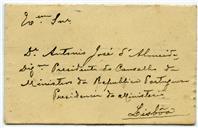 Exmo Snr.
Dr. Antonio José d'Almeida
Digmo Presidente do Conselho de
Ministros da Republica Portuguesa
Presidencia do Ministerio
Lisbôa